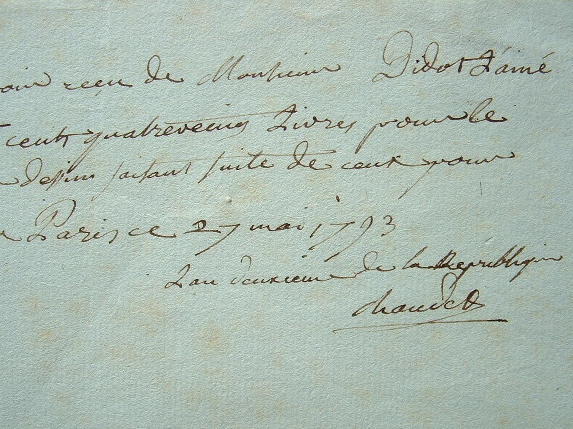 reçu de Monsieur Didot L'ainé
cent quatreveing Livres pour le
dessin faisant suite de ceux pour
Paris ce 27 mai 1793
L'an deuxieme de la Republique
chaudet